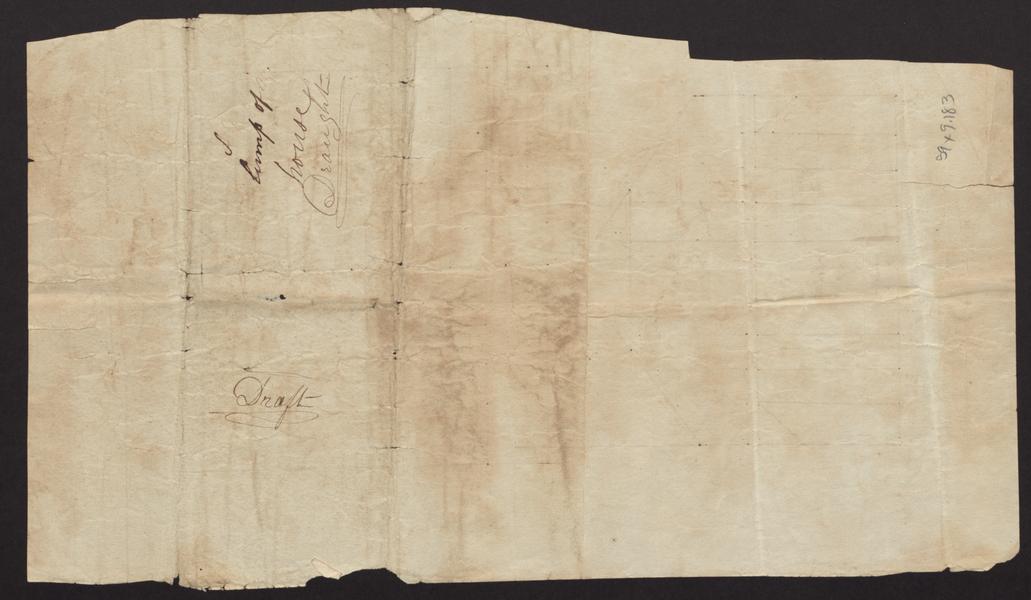 bump of
house
Draught
Draft
59 x 9.183